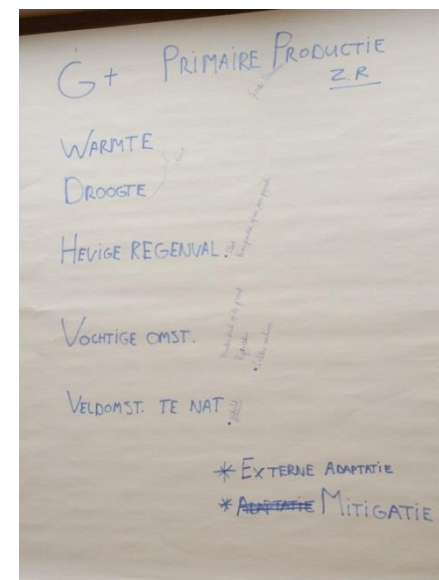 G+ PRIMAIRE PRODUCTIE
Z.R
WARMTE
DROOGTE
HEVIGE REGENVAL.
VOCHTIGE OMST.
VELDOMST. TE NAT
* EXTERNE ADAPTATIE
* ADAPTATIE MITIGATIE